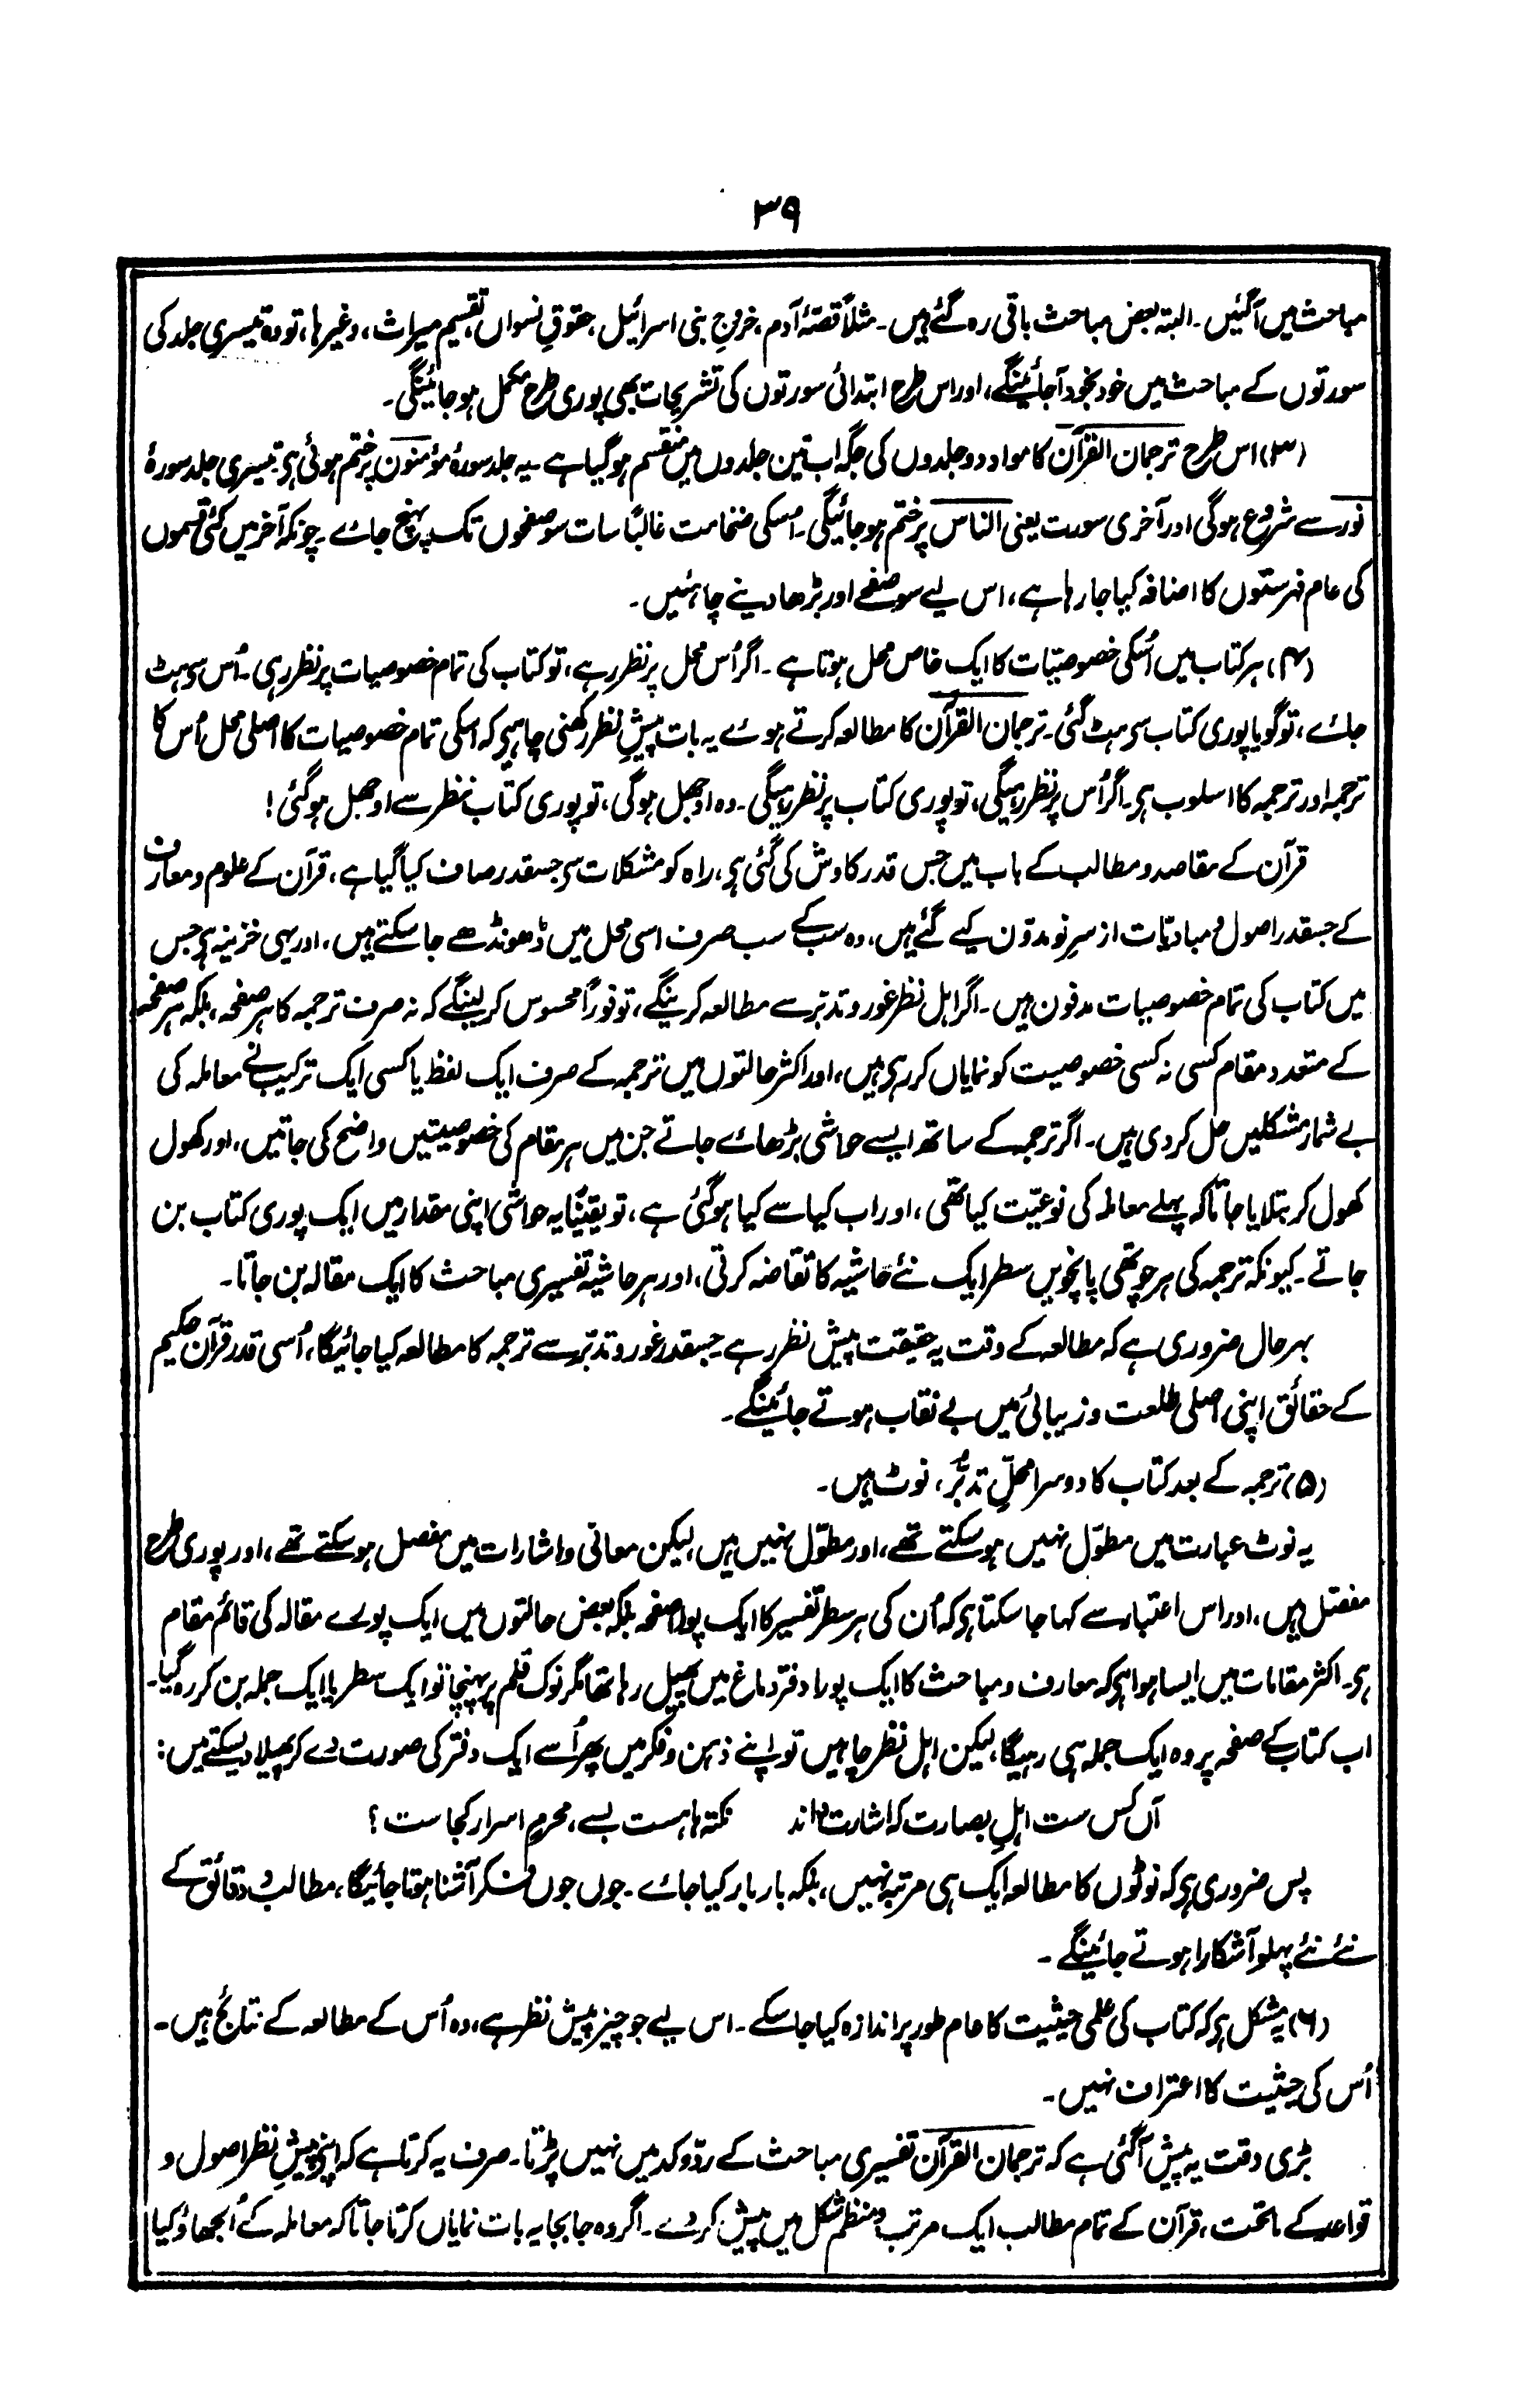 ۳۹
مباحث میں آگئیں۔ البتہ بعض مباحث باقی رہ گئے ہیں۔ مثلاً قصۂ آدم، خروجِ بنی اسرائیل، حقوقِ نسواں، تقسیم میراث، وغیرہا، تو وہ تیسری جلد کی
سورتوں کے مباحث میں خود بخود آجائینگے، اور اس طرح ابتدائی سورتوں کی تشریحات بھی پوری طرح مکمل ہوجائینگی۔
(۳) اس طرح ترجمان القرآن کا مواد دو جلدوں کی جگہ اب تین جلدوں میں منقسم ہوگیا ہے۔ یہ جلد سورۂ مؤمنون پر ختم ہوئی ہی، تیسری جلد سورۂ
نور سے شروع ہوگی اور آخری سورت یعنی الناس پر ختم ہوجائیگی۔ اسکی ضخامت غالباً سات سو صفحوں تک پہنچ جائے۔ چونکہ آخر میں کئی قسموں
کی عام فہرستوں کا اضافہ کیا جارہا ہے، اس لیے سو صفحے اور بڑھا دینے چاہئیں۔
(۴) ہر کتاب میں اُسکی خصوصیّات کا ایک خاص محل ہوتا ہے۔ اگر اُس محل پر نظر رہے، تو کتاب کی تمام خصوصیات پر نظر رہی۔ اُس سی ہٹ
جائے، تو گویا پوری کتاب سی ہٹ گئی۔ ترجمان القرآن کا مطالعہ کرتے ہوئے یہ بات پیشِ نظر رکھنی چاہیی کہ اسکی تمام خصوصیات کا اصلی محل اُس کا
ترجمہ اور ترجمہ کا اسلوب ہی۔ اگر اُس پر نظر رہیگی، تو پوری کتاب پر نظر رہیگی۔ وہ اوجھل ہوگی، تو پوری کتاب نظر سے اوجھل ہوگئی!
قرآن کے مقاصد و مطالب کے باب میں جس قدر کاوش کی گئی ہی، راہ کو مشکلات سی جسقدر صاف کیا گیا ہے، قرآن کے علوم و معارف
کے جسقدر اصول و مبادیّات از سرِ نو مدوّن کیے گئے ہیں، وہ سب کے سب صرف اسی محل میں ڈھونڈھے جاسکتے ہیں، اور یہی خزینہ ہی جس
میں کتاب کی تمام خصوصیات مدفون ہیں۔ اگر اہل نظر غور و تدبّر سے مطالعہ کرینگے، تو فوراً محسوس کرلینگے کہ نہ صرف ترجمہ کا ہر صفحہ، بلکہ ہر صفحہ
کے متعدد مقام کسی نہ کسی خصوصیت کو نمایاں کر رہی ہیں، اور اکثر حالتوں میں ترجمہ کے صرف ایک لفظ یا کسی ایک ترکیب نے معاملہ کی
بے شمار مشکلیں حل کردی ہیں۔ اگر ترجمہ کے ساتھ ایسے حواشی بڑھائے جاتے جن میں ہر مقام کی خصوصیتیں واضح کی جاتیں، اور کھول
کھول کر بتلایا جاتا کہ پہلے معاملہ کی نوعیّت کیا تھی، اور اب کیا سے کیا ہوگئی ہے، تو یقیناً یہ حواشی اپنی مقدار میں ایک پوری کتاب بن
جاتے۔ کیونکہ ترجمہ کی ہر چوتھی پانچویں سطر ایک نئے حاشیہ کا تقاضہ کرتی، اور ہر حاشیہ تفسیری مباحث کا ایک مقالہ بن جاتا۔
بہر حال ضروری ہے کہ مطالعہ کے وقت یہ حقیقت پیش نظر رہے۔ جسقدر غور و تدبّر سے ترجمہ کا مطالعہ کیا جائیگا، اُسی قدر قرآن حکیم
کے حقائق اپنی اصلی طلعت و زیبائی میں بے نقاب ہوتے جائینگے۔
(۵) ترجمہ کے بعد کتاب کا دوسرا محلِّ تدبُّر، نوٹ ہیں۔
یہ نوٹ عبارت میں مطوّل نہیں ہوسکتے تھے، اور مطوّل نہیں ہیں، لیکن معانی و اشارات میں مفصل ہوسکتے تھے، اور پوری طرح
مفصّل ہیں، اور اس اعتبار سے کہا جاسکتا ہی کہ اُن کی ہر سطر تفسیر کا ایک پورا صفحہ بلکہ بعض حالتوں میں ایک پورے مقالہ کی قائم مقام
ہی۔ اکثر مقامات میں ایسا ہوا ہی کہ معارف و مباحث کا ایک پورا دفتر دماغ میں پھیل رہا تھا مگر نوک قلم پر پہنچا تو ایک سطر یا ایک جملہ بن کر رہ گیا۔
اب کتاب کے صفحہ پر وہ ایک جملہ ہی رہیگا، لیکن اہل نظر چاہیں تو اپنے ذہن و فکر میں پھر اُسے ایک دفتر کی صورت دے کر پھیلا دیسکتے ہیں:
آں کس ست اہلِ بصارت کہ اشارت داند   نکتہ ہا ہست بسے، محرمِ اسرار کجا ست؟
پس ضروری ہی کہ نوٹوں کا مطالعہ ایک ہی مرتبہ نہیں، بلکہ بار بار کیا جائے۔ جوں جوں فکر آشنا ہوتا جائیگا، مطالب و دقائق کے
نئے نئے پہلو آشکارا ہوتے جائینگے۔
(۶) یہ مشکل ہی کہ کتاب کی علمی حیثیت کا عام طور پر اندازہ کیا جاسکے۔ اس لیے جو چیز پیش نظر ہے، وہ اُس کے مطالعہ کے نتائج ہیں۔
اُس کی حیثیت کا اعتراف نہیں۔
بڑی دقت یہ پیش آگئی ہے کہ ترجمان القرآن تفسیری مباحث کے ردّ و کد میں نہیں پڑتا۔ صرف یہ کرتا ہے کہ اپنی پیشِ نظر اصول و
قواعد کے ماتحت، قرآن کے تمام مطالب ایک مرتب و منظم شکل میں پیش کردے۔ اگر وہ جا بجا یہ بات نمایاں کرتا جاتا کہ معاملہ کے اُلجھاؤ کیا